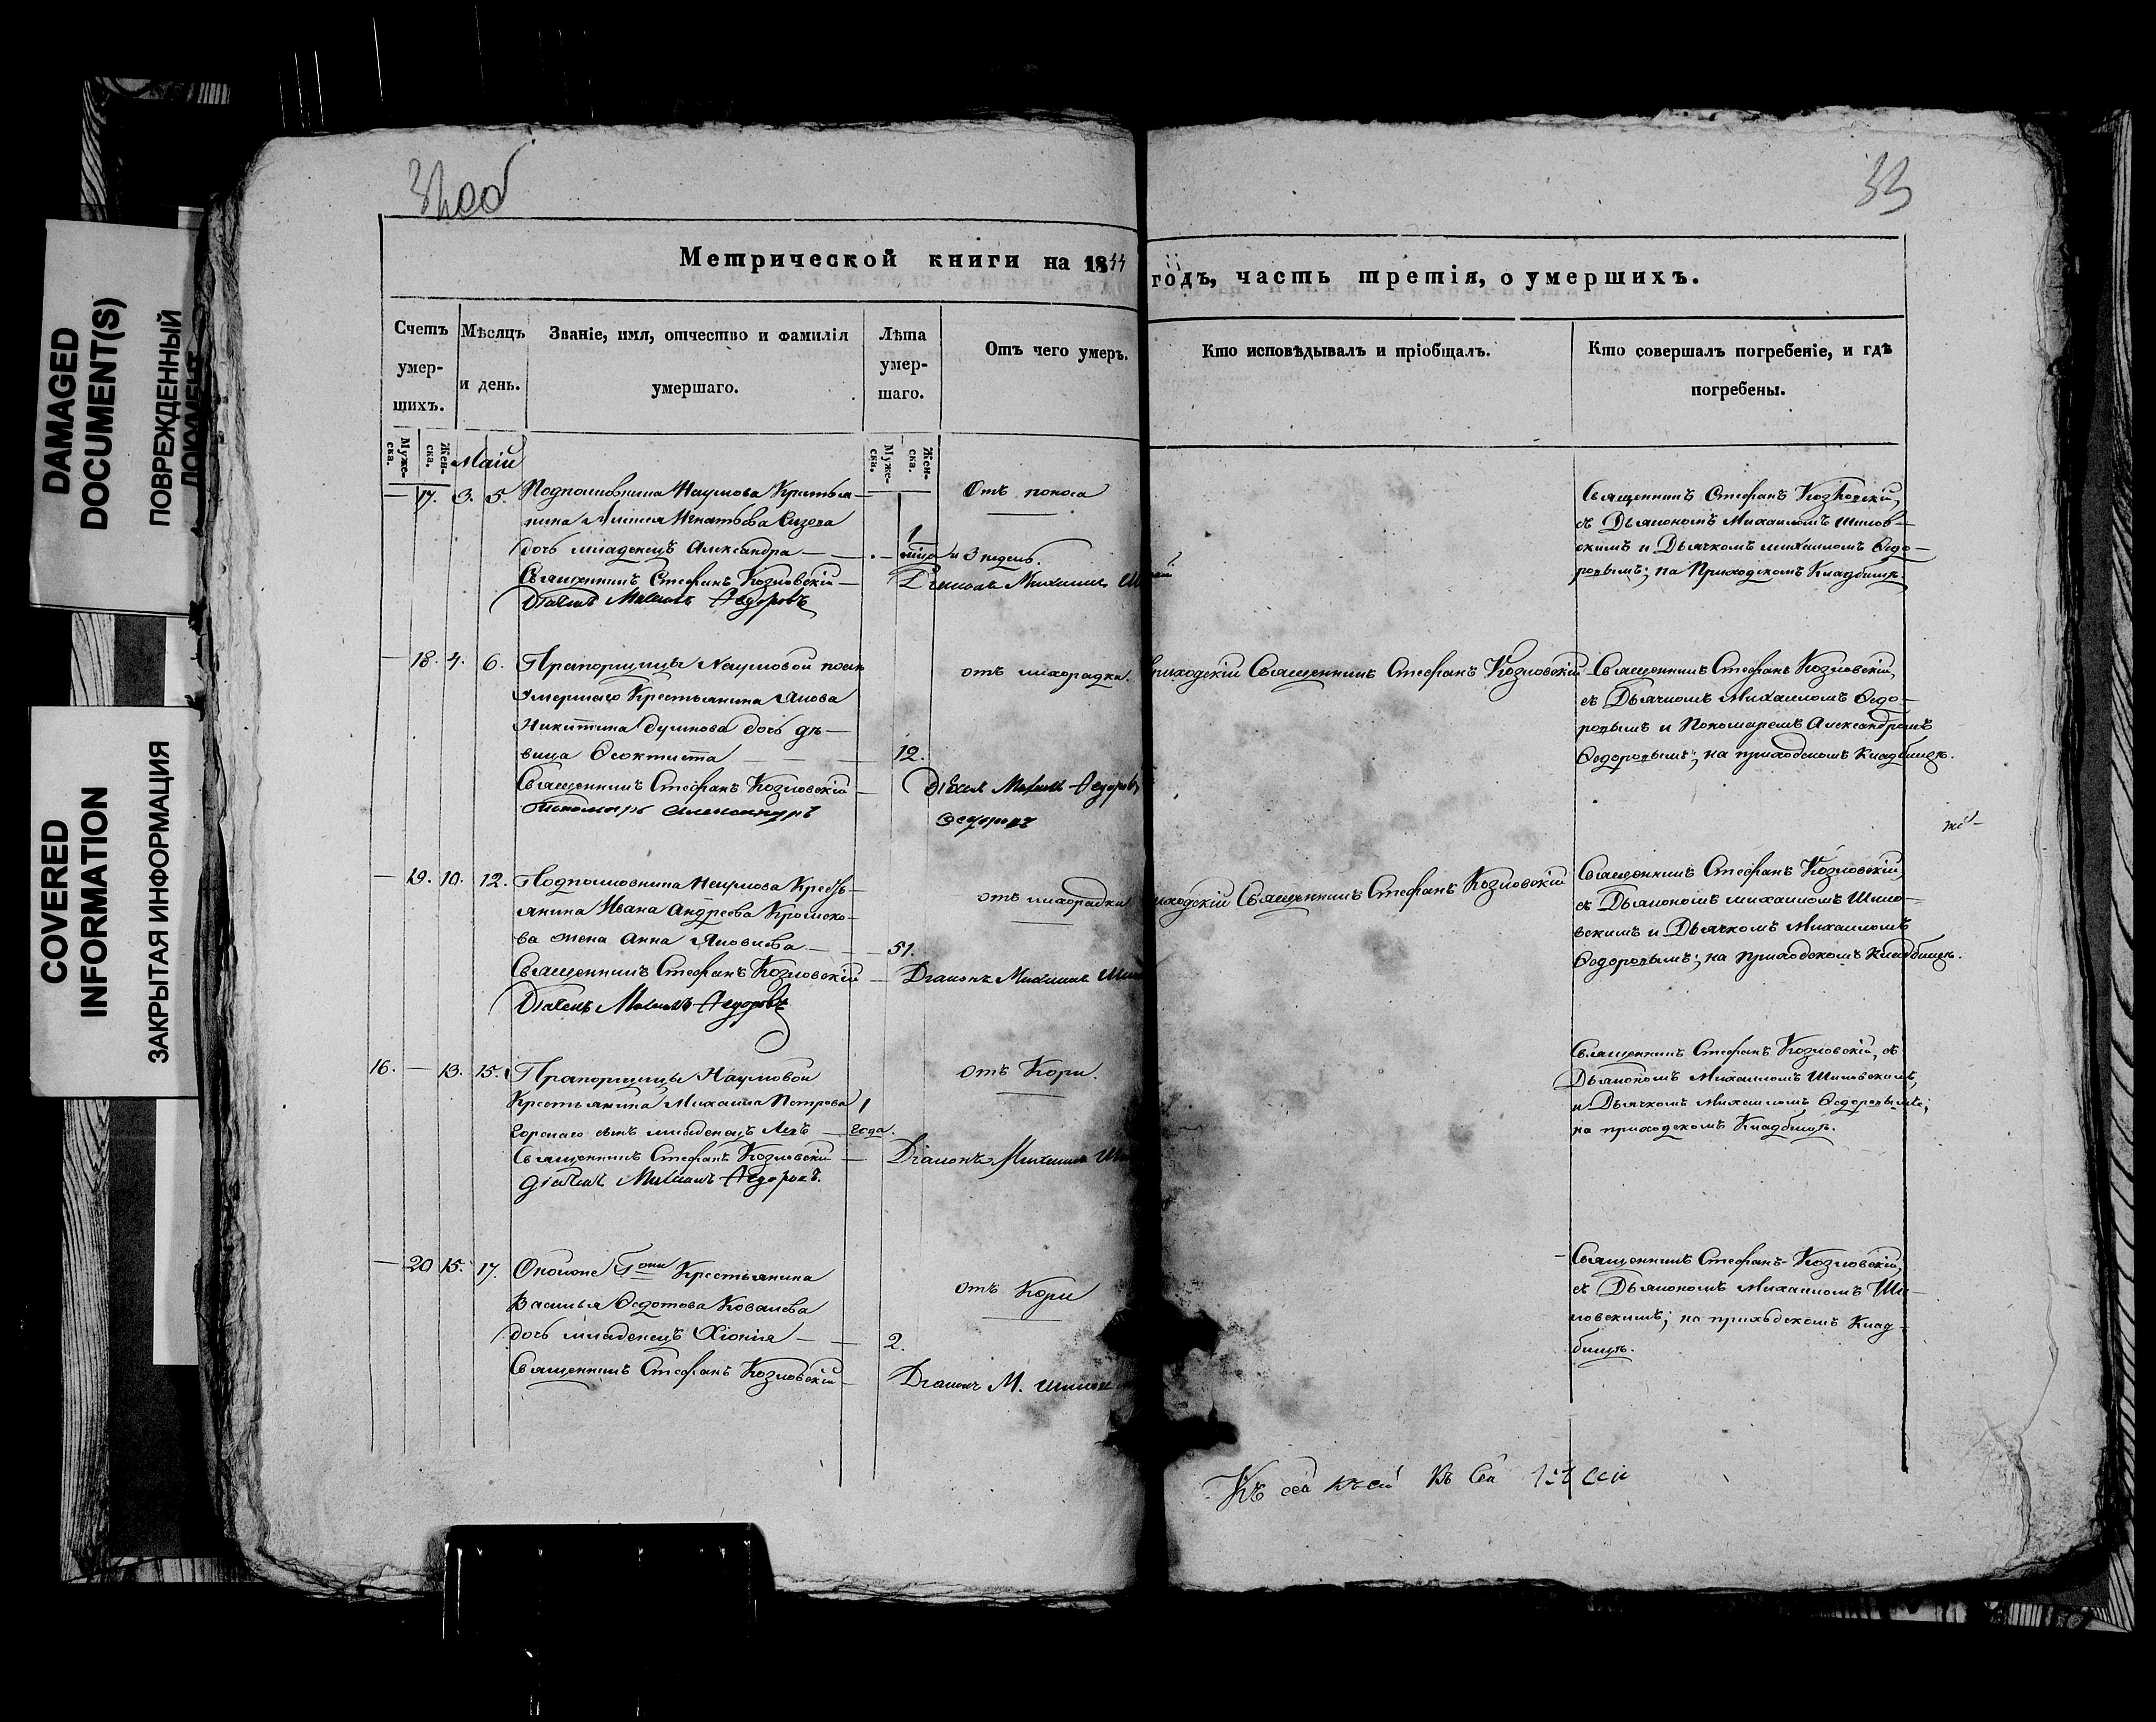 DAMAGED
DOCUMENT(S)
ПОВРЕЖДЕННЫЙ
ДОКУМЕНТ
COVERED
INFORMATION
ЗАКРЫТАЯ ИНФОРМАЦИЯ
32об
33
Метрической книги на 1844 годъ, часть третія, о умершихъ.
Счетъ умер-
шихъ.
Мѣсяцъ
и день.
Званіе, имя, отчество и фамилія
умершаго.
Лѣта
умер-
шаго.
Отъ чего умеръ.
Кто исповѣдывалъ и пріобщалъ.
Кто совершалъ погребеніе, и гдѣ
погребены.
Муже-
ска.
Жен-
ска.
Муже-
ска.
Жен-
ска.
Маій
— 17. 3. 5. Подполковника Наумова Крестья-
нина Игнатьева
дочь младенецъ Александра —
1
и 3 недель.
Отъ поноса
Священникъ Стефанъ Козловскій
Діаконъ Михаилъ
Дьячекъ Михаилъ Федоровъ
Священникъ Стефанъ Козловскій,
съ Дьякономъ Михаиломъ Шилов-
скимъ и Дьячкомъ михаиломъ Ѳедо-
ровымъ; на Приходскомъ Кладбищѣ.
— 18. 4. 6. Прапорщицы Наумовой
умершаго Крестьянина Якова
Никитина дочь дѣ-
вица Ѳеоктиста — 12.
отъ лихорадки.
Приходскій Священникъ Стефанъ Козловскій
Священникъ Стефанъ Козловскій
Дьячекъ Михаилъ Федоровъ
Пономарь Александръ Федоровъ
Священникъ Стефанъ Козловскій,
съ Дьячкомъ Михаиломъ Ѳедо-
ровымъ и Пономаремъ Александромъ
Ѳедоровымъ; на приходскомъ Кладбищѣ.
— 19. 10. 12. Подполковника Наумова Кресть-
янина Ивана Андреева
жена Анна Яковлева — 51.
отъ лихорадки
Приходскій Священникъ Стефанъ Козловскій
Священникъ Стефанъ Козловскій — Діаконъ Михаилъ
Дьячекъ Михаилъ Федоровъ
Священникъ Стефанъ Козловскій,
съ Дьякономъ михаиломъ Шило-
вскимъ и Дьячкомъ Михаиломъ
Ѳедоровымъ; на приходскомъ Кладбищѣ.
16. — 13. 15. Прапорщицы Наумовой
Крестьянина Михаила Петрова 1
сынъ младенецъ — года.
отъ Кори.
Священникъ Стефанъ Козловскій — Діаконъ Михаилъ
Дьячекъ Михаилъ Федоровъ.
Священникъ Стефанъ Козловскій, съ
Дьякономъ Михаиломъ Шиловскимъ,
и Дьячкомъ Михаиломъ Ѳедоровымъ;
на приходскомъ Кладбищѣ.
— 20 15. 17. Крестьянина
Василья Ѳедотова Ковалева
дочь младенецъ Хіонія — 2.
отъ Кори
Священникъ Стефанъ Козловскій — Діаконъ М.
Священникъ Стефанъ Козловскій,
съ Дьякономъ Михаиломъ Ши-
ловскимъ; на приходскомъ Клад-
бищѣ.